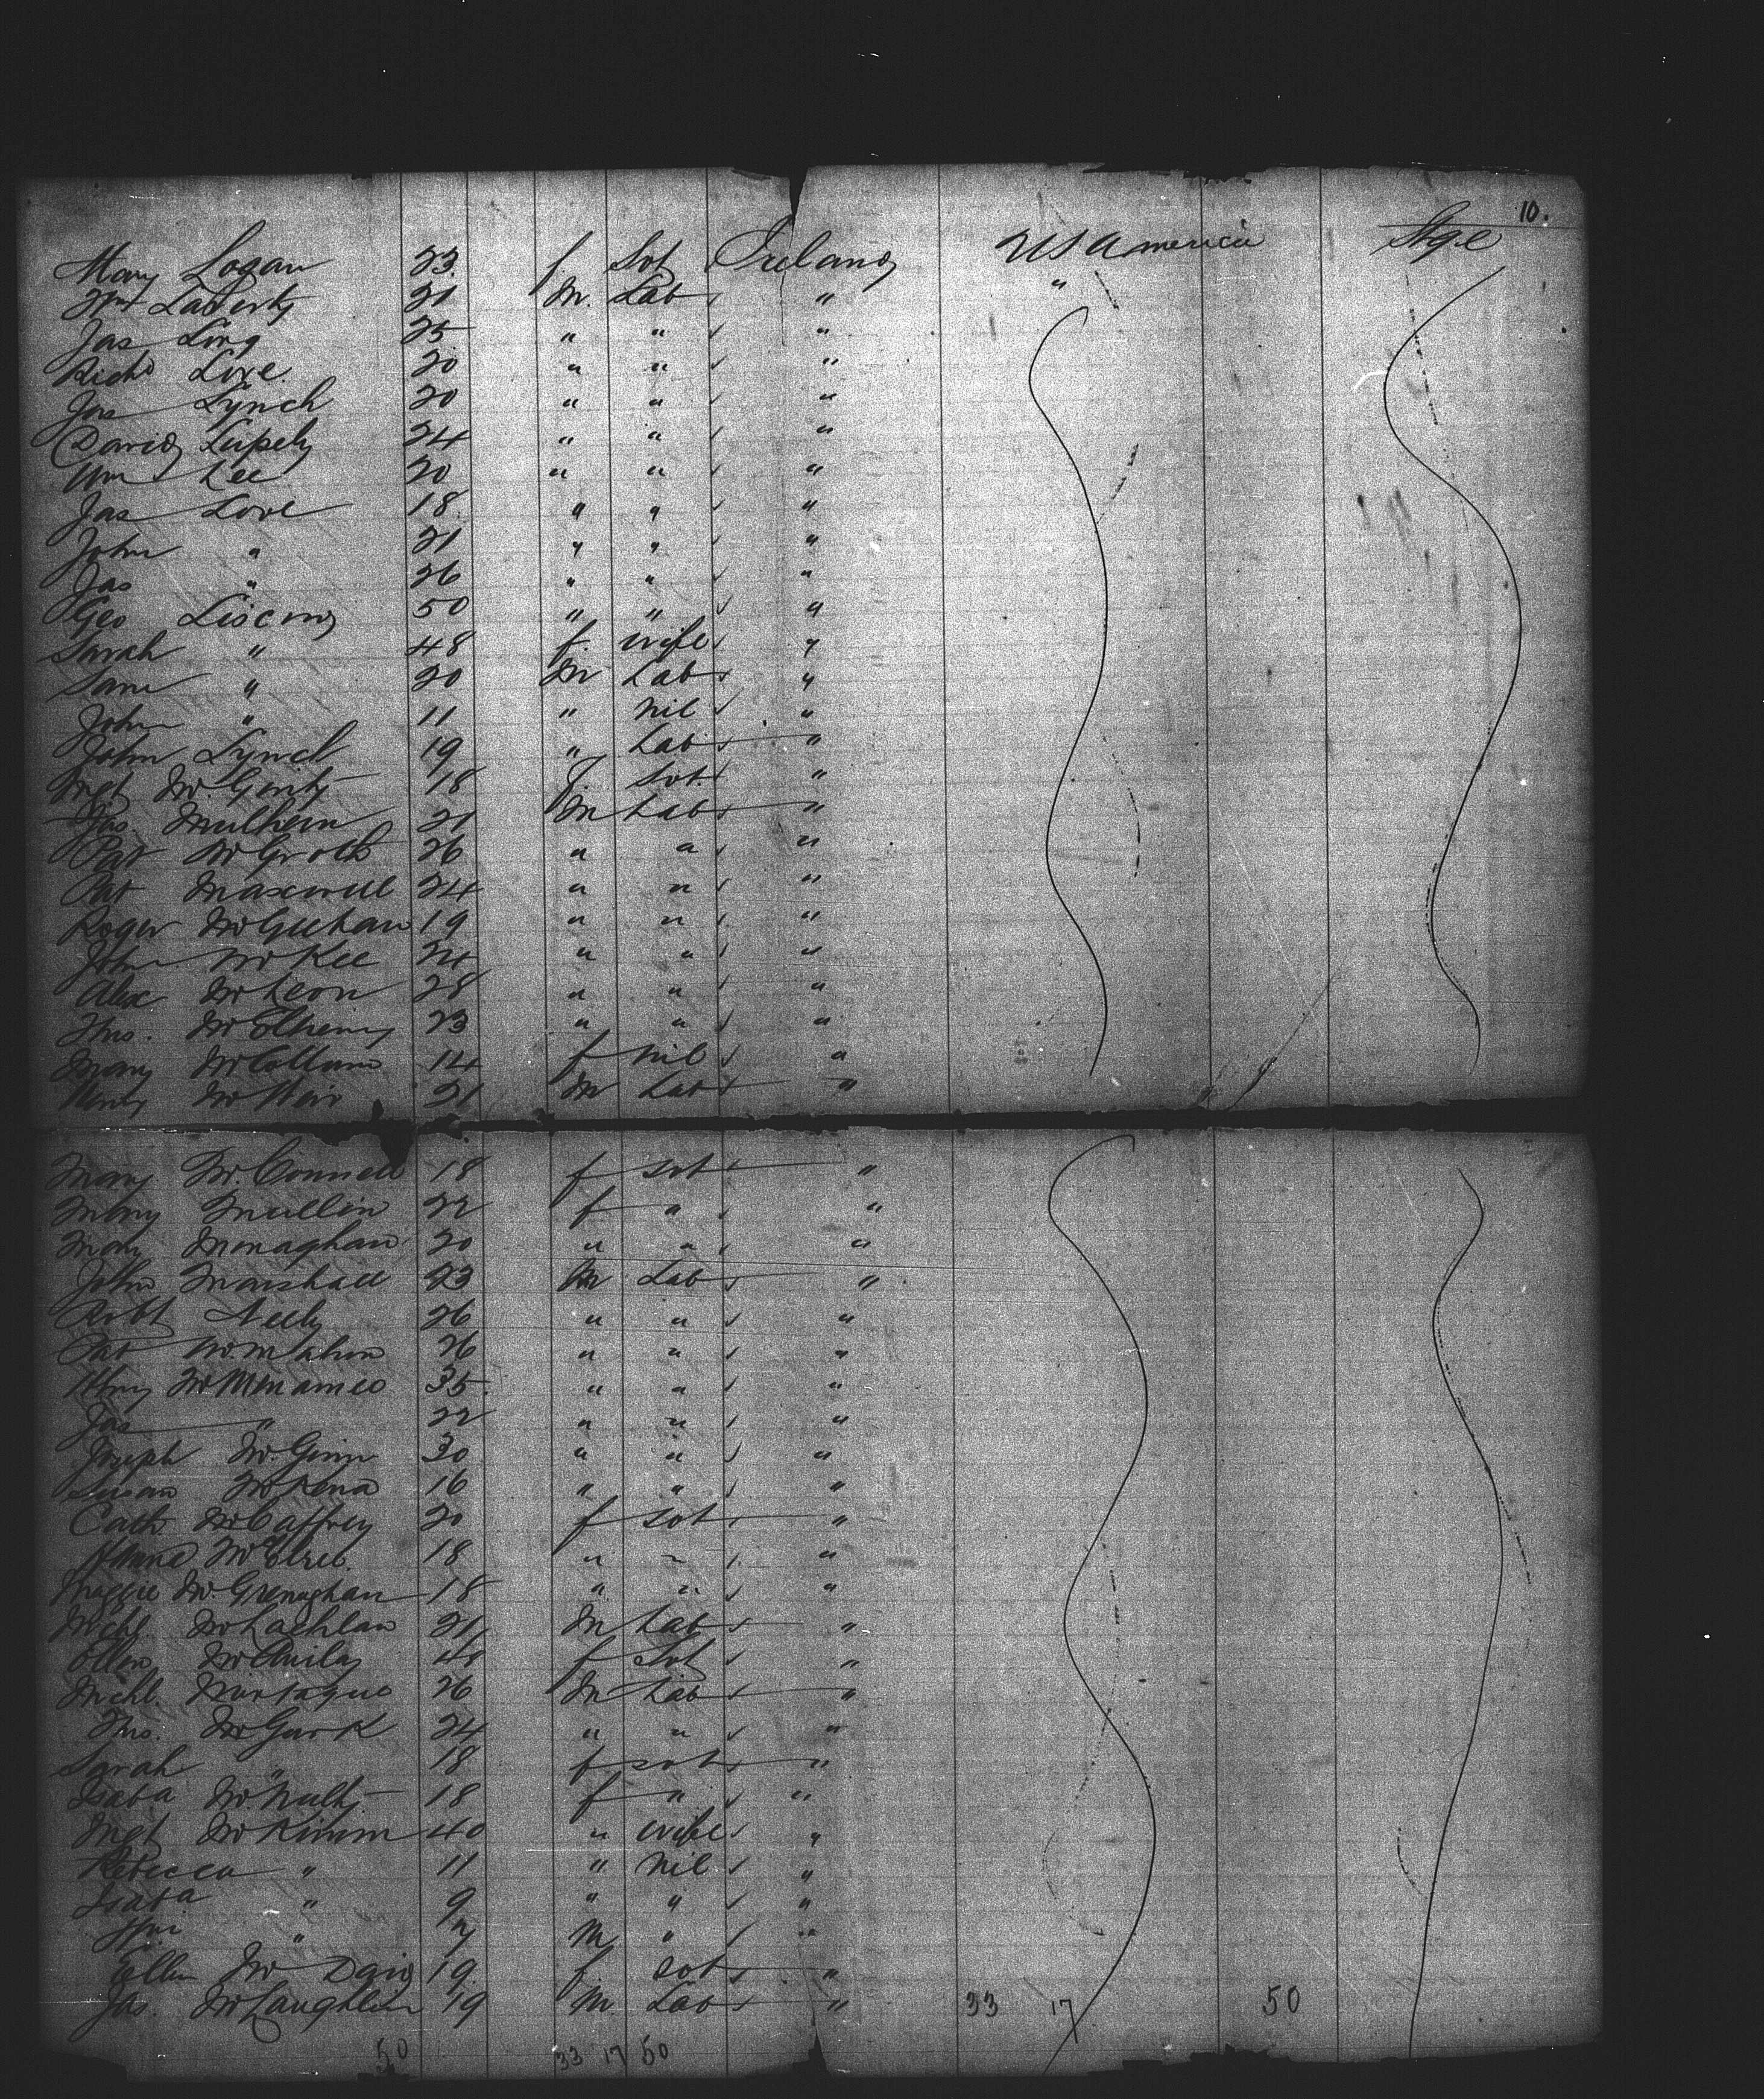 10.
Mary Logan 23 f Svt Ireland U S America Stge
Wm Laverty 21 M. Lab " "
Jas Long 25 " " "
Richd Love 20 " " "
Jas Lynch 20 " " "
David 24 " " "
Wm Lee 20 " " "
Jas Love 18 " " "
John " 21 " " "
Jas " 26 " " "
Geo 50 " " "
Sarah " 48 f. wife "
Sam " 20 M Lab "
John " 11 " nil "
John Lynch 19 " Lab "
Mgt McGinty 18 f. Svt. "
Jas. Mulhern 21 M Lab "
Pat 26 " " "
Pat Maxwell 24 " " "
Roger McGeehan 19 " " "
John McKee 24 " " "
Alex McKeon 28 " " "
Thos. McElhenny 23 " " "
Mary McCallum 14 f nil "
Henry McWeir 21 M Lab "
Mary McConnell 18 f svt "
Mary Mullin 22 f " "
Mary Monaghan 20 " " "
John Marshall 23 M Lab "
Robt Neely 26 " " "
Pat McMahon 26 " " "
Henry McMenamee 35 " " "
Jas " 22 " " "
Joseph McGinn 30 " " "
Susan McKena 16 " " "
Cath McCaffrey 20 f svt "
McElree 18 " " "
Maggie McGrenaghan 18 " " "
Michl McLachlan 21 M Lab "
Ellen f Svt "
Michl. Montague 26 M Lab "
Thos. McGurk 24 " " "
Sarah " 18 f svt "
Isaba McNulty 18 f " "
Mgt McKimm 40 " wife "
Rebecca " 11 " nil "
Isaba " 9 " " "
Wm " 7 M " "
Ellen McDaid 19 f svt "
Jas. McLaughlin 19 M Lab " 33 17 50
50 33 17 50